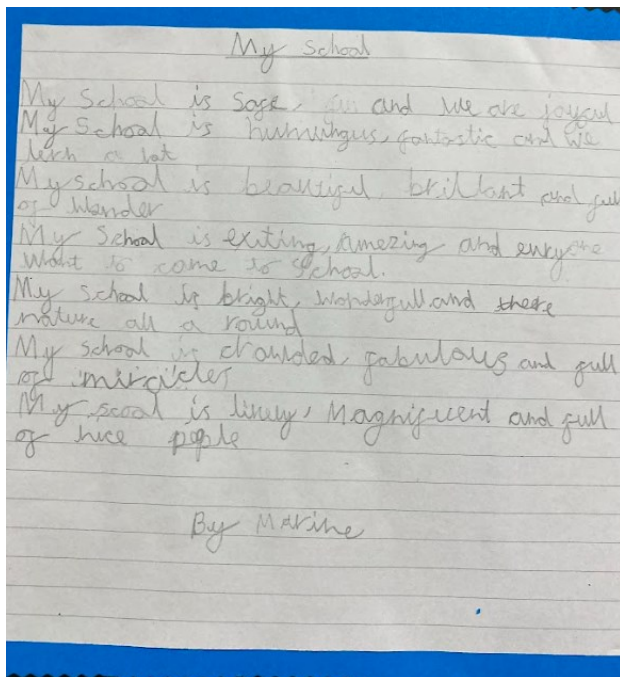 My School
My School is safe, fun and we are joyful
My School is humungus, fantastic and we
lern a lot
My school is beautiful, brillant and full
of Wonder
My School is exiting, amezing and evryone
want to come to School.
My school is bright, wonderfull and there
nature all a round
My school is crowded, fabulous and full
of miricles
My scool is lively, Magnificent and full
of nice pople
By Marine